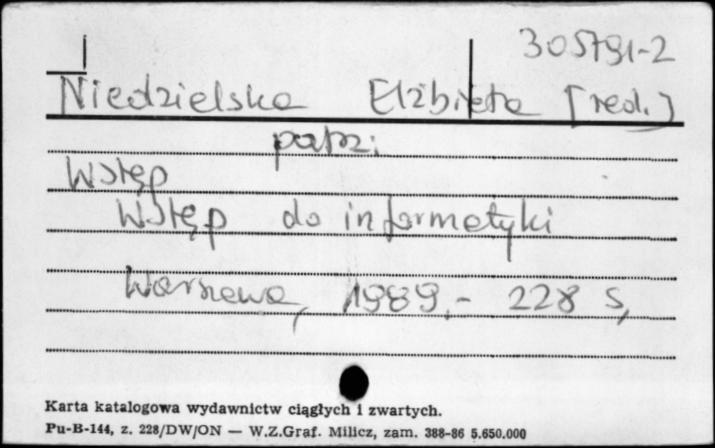 305791-2
Niedzielska Elżbieta [red.]
patrz:
Wstęp
Wstęp do informatyki
Warszawa, 1989,- 228 s,
Karta katalogowa wydawnictw ciągłych i zwartych.
Pu-B-144, z. 228/DW/ON — W.Z.Graf. Milicz, zam. 388-86 5.650.000